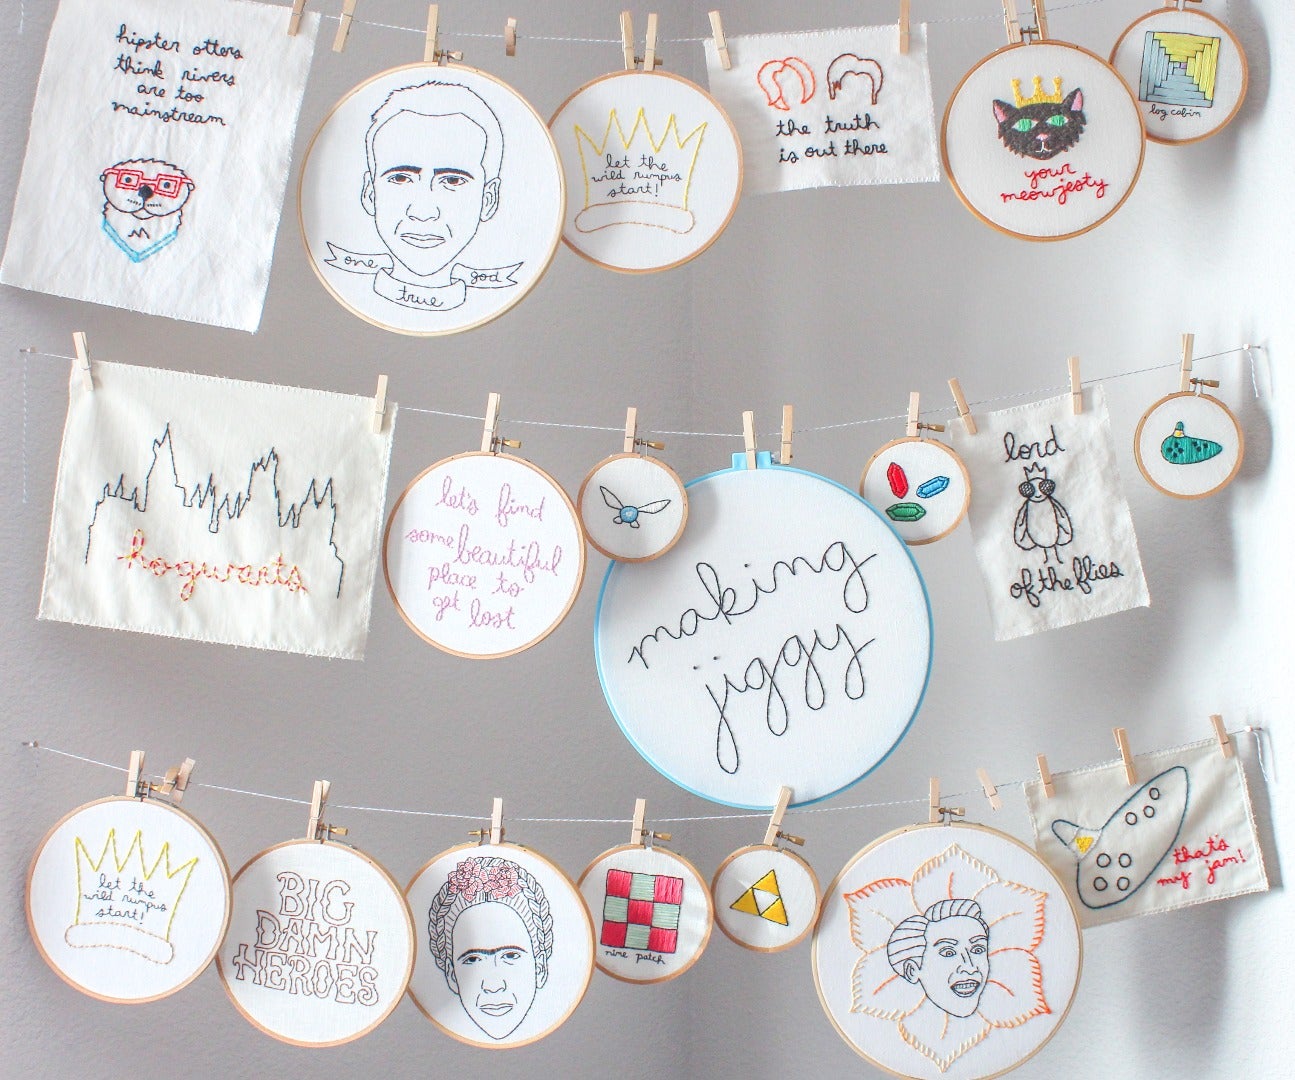 hipster otters
think rivers
are too
mainstream
one
true
god
let the
wild rumpus
start!
the truth
is out there
your
meowjesty
log cabin
hogwarts
let's find
some beautiful
place to
get lost
making
jiggy
lord
of the flies
let the
wild rumpus
start!
BIG
DAMN
HEROES
nine patch
that's
my jam!